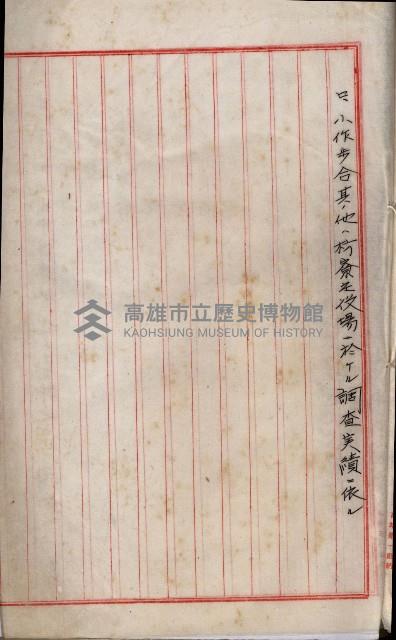 ロ、小作歩合其ノ他ハ枋寮庄役場ニ於ケル調査実績ニ依ル
高雄市立歷史博物館
KAOHSIUNG MUSEUM OF HISTORY